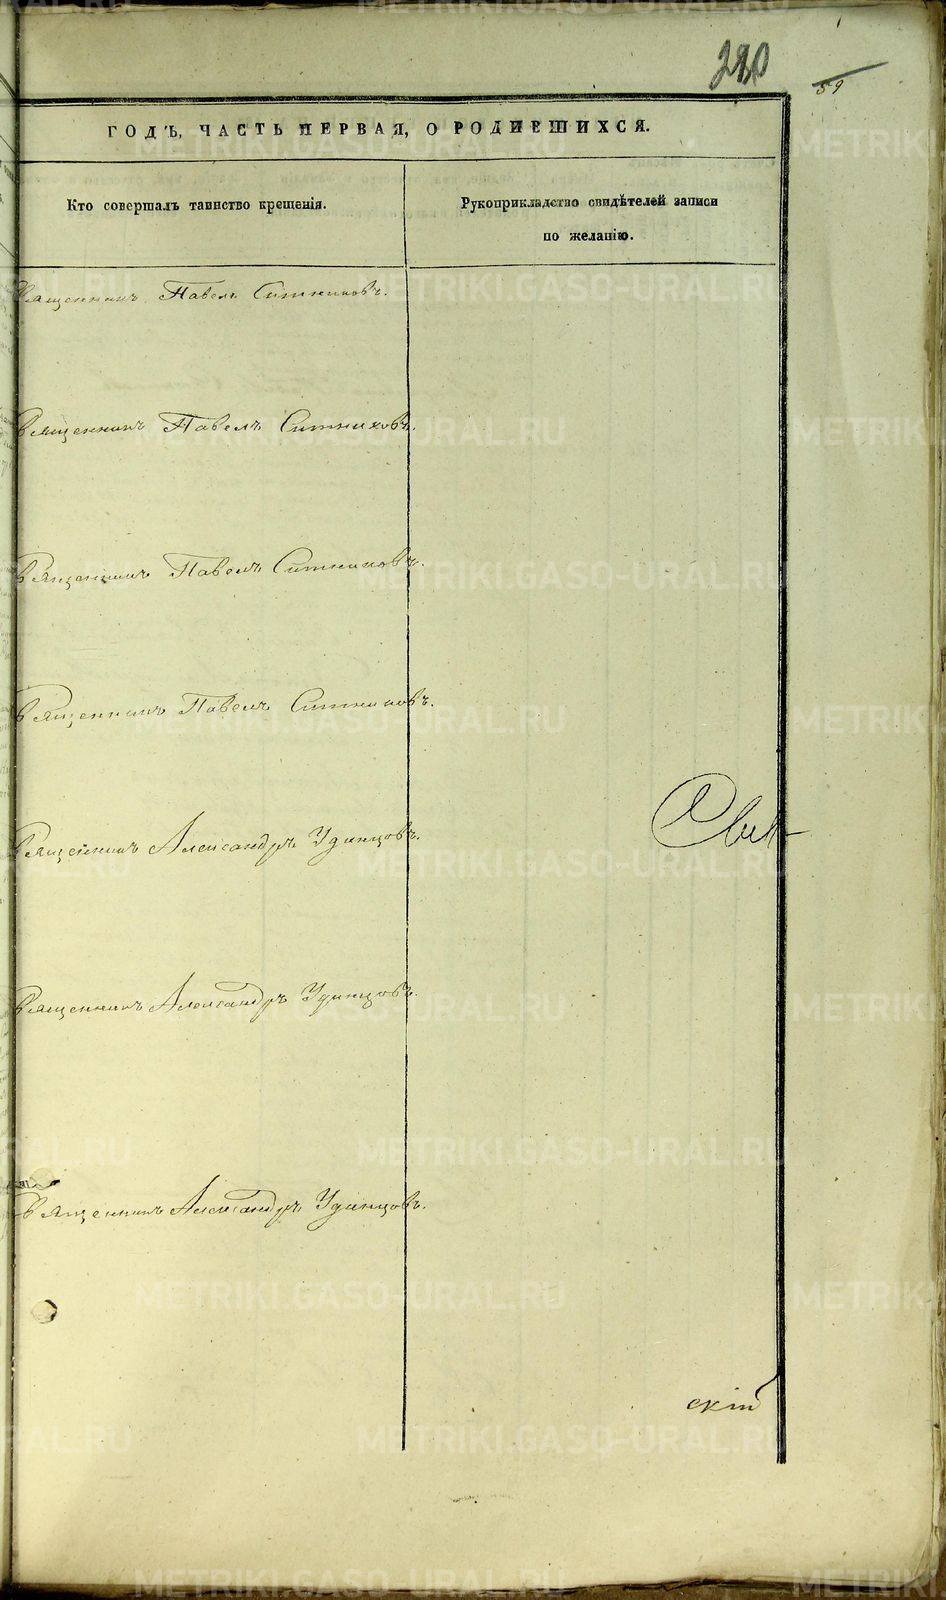 280
59
ГОДЪ, ЧАСТЬ ПЕРВАЯ, О РОДИВШИХСЯ.
Кто совершалъ таинство крещенія.
Рукоприкладство свидѣтелей записи
по желанію.
Священникъ Павелъ Ситниковъ.
Священникъ Павелъ Ситниковъ.
Священникъ Павелъ Ситниковъ.
Священникъ Павелъ Ситниковъ.
Священникъ Александръ Удинцовъ.
Священникъ Александръ Удинцовъ.
Священникъ Александръ Удинцовъ.
скій
METRIKI.GASO-URAL.RU